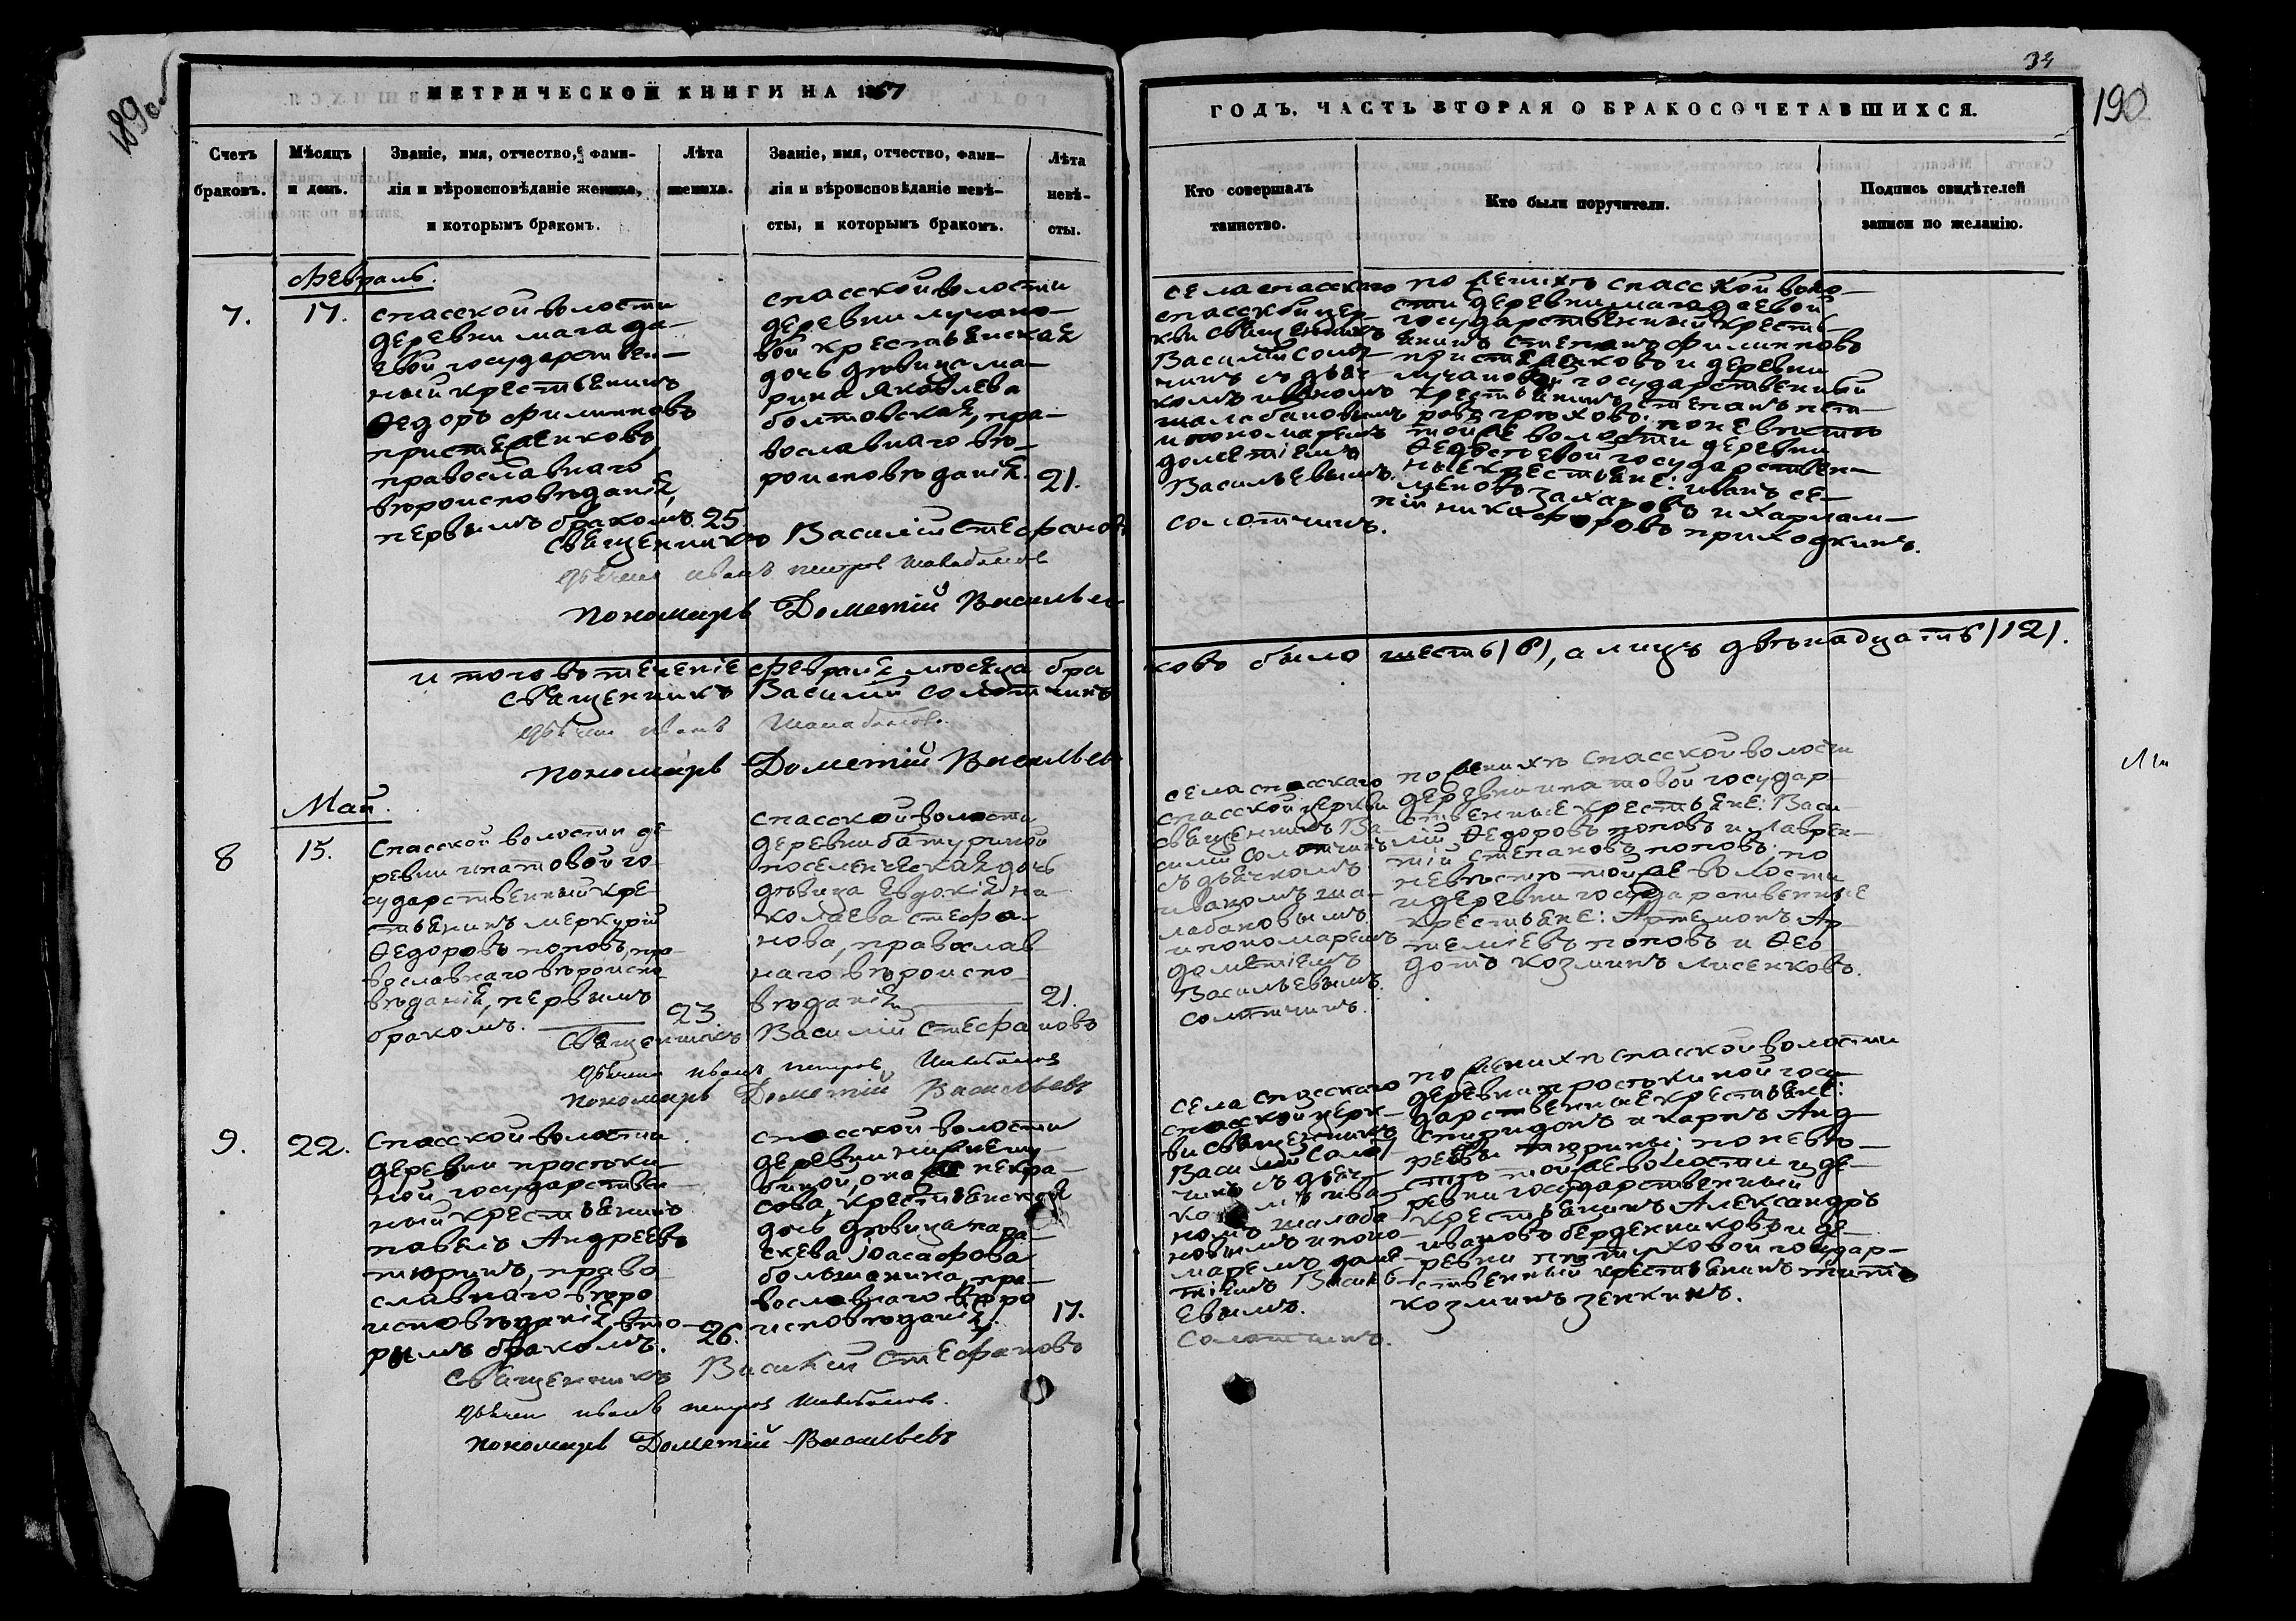 189об
МЕТРИЧЕСКОЙ КНИГИ НА 1857
Счетъ браковъ.
Мѣсяцъ и день.
Званіе, имя, отчество, фами-
лія и вѣроисповѣданіе жениха,
и которымъ бракомъ.
Лѣта
жениха.
Званіе, имя, отчество, фами-
лія и вѣроисповѣданіе невѣ-
сты, и которымъ бракомъ.
Лѣта
невѣ-
сты.
Февраль.
7.
17.
спасской волости
деревни магада-
евой государствен-
ный крестьянинъ
Ѳедоръ Филипповъ
пристяженковъ
православнаго
вѣроисповѣданія,
первымъ бракомъ. 25.
спасской волости
деревни лучано-
вой крестьянская
дочь дѣвица ма-
рина Яковлева
болтовская, пра-
вославнаго вѣ-
роисповѣданія. 21.
Священникъ Василій Стефановъ
дьячекъ иванъ петров Шалабановъ
пономарь Дометій Васильев
итого въ теченіе февраля мѣсяца бра
Священникъ Василій солотчинъ
дьячекъ иванъ Шалабановъ
пономарь Дометій Васильев
Май.
8
15.
Спасской волости де-
ревни ипатовой го-
сударственный кре-
стьянинъ меркурій
Ѳедоровъ поповъ, пра-
вославнаго вѣроиспо-
вѣданія, первымъ
бракомъ. 23.
спасской волости
деревни батуриной
поселенческая дочь
дѣвица Евдокія ни-
колаева стефа-
нова, православ
наго вѣроиспо-
вѣданія 21.
Священникъ Василій Стефановъ
дьячекъ иванъ петров Шалабановъ
пономарь Дометій Васильевъ
9.
22.
Спасской волости
деревни простоки-
ной государствен-
ный крестьянинъ
павелъ Андреевъ
тюринъ, право
славнаго вѣро
исповѣданія, вто-
рымъ бракомъ. 26.
спасской волости
деревни
некра-
сова, крестьянская
дочь дѣвица пара-
скева Іоасафова
большанина, пра-
вославнаго вѣро
исповѣданія. 17.
Священникъ Василій Стефановъ
дьячекъ иванъ петров Шалабановъ.
пономарь Дометій Васильевъ
34
190
ГОДЪ, ЧАСТЬ ВТОРАЯ О БРАКОСОЧЕТАВШИХСЯ.
Кто совершалъ
таинство.
Кто были поручители.
Подпись свидѣтелей
записи по желанію.
села спасскаго
спасской цер-
кви священникъ
Василій солот-
чинъ съ дьяч-
комъ иваномъ
шалабановымъ
и пономаремъ
дометіемъ
Васильевымъ.
солотчинъ.
по женихѣ спасской воло-
сти деревни магадаевой
государственный кресть-
янинъ степанъ Филипповъ
пристяженковъ и деревни
лучановой государственный
крестьянинъ степанъ пет-
ровъ грѣховъ: по невѣстѣ
той же волости деревни
Ѳедѣевой государствен-
ные крестьяне: иванъ се-
меновъ захаровъ и харлам-
пій никифоровъ приходкинъ.
ковъ было шесть (6), а лицъ двѣнадцать (12).
села спасскаго
спасской церкви
священникъ Ва-
силій солотчинъ
съ дьячкомъ
иваномъ ша-
лабановымъ
и пономаремъ
дометіемъ
Васильевымъ.
солотчинъ.
по женихѣ спасской волости
деревни ипатовой государ-
ственные крестьяне: Васи-
лій Ѳедоровъ поповъ и Лаврен-
тій степановъ поповъ: по
невѣстѣ той же волости
и деревни государственные
крестьяне: Артемонъ Ар-
темьевъ поповъ и Ѳео-
дотъ козминъ лисенковъ.
села спасскаго
спасской церк-
ви священникъ
Василій солот-
чинъ съ дьяч-
комъ ива-
номъ шалаба-
новымъ и поно-
маремъ доме-
тіемъ Василь-
евымъ.
солотчинъ.
по женихѣ спасской волости
деревни простокиной госу-
дарственные крестьяне:
спиридонъ и карпъ Анд-
реевы тюрины: по невѣ-
стѣ той же волости и де-
ревни государственный
крестьянинъ Александръ
ивановъ бердениковъ и де-
ревни пѣтуховой государ-
ственный крестьянинъ титъ
козминъ зенкинъ.